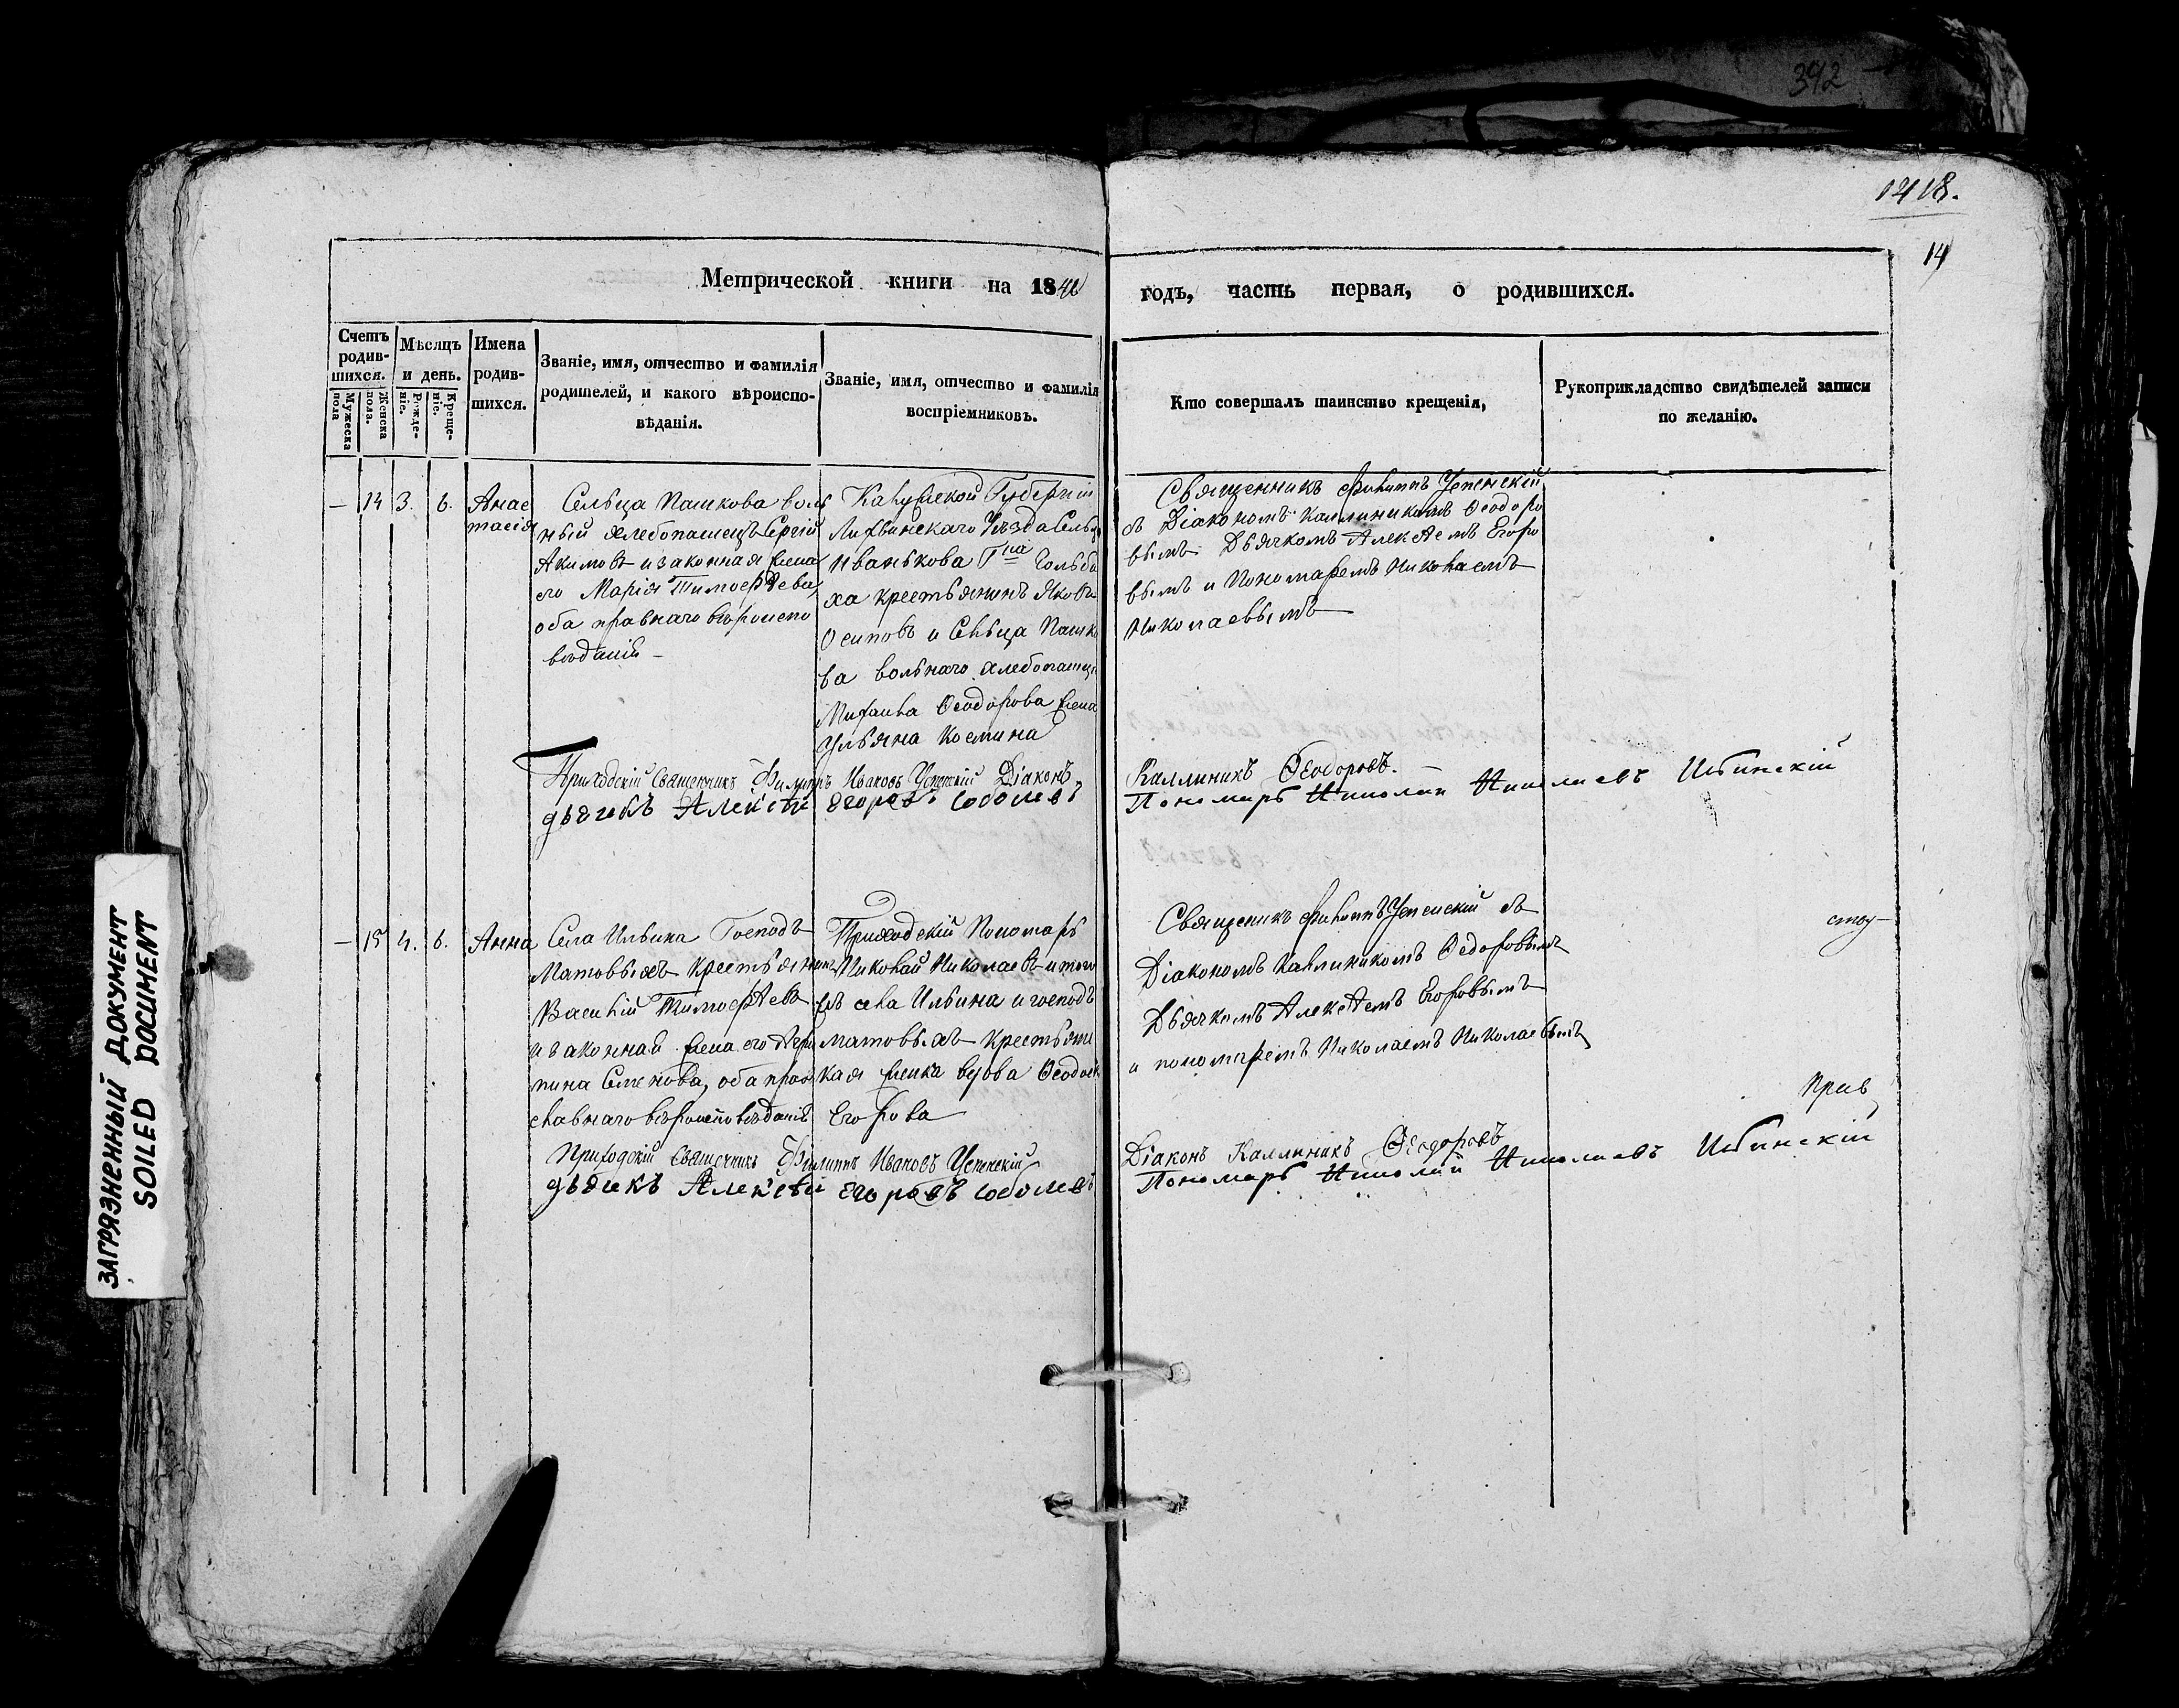 392
1418.
14
Метрической книги на 1840 годъ, часть первая, о родившихся.
Счетъ родившихся.
Мужеска пола
Женска пола.
Мѣсяцъ и день.
Рожденіе.
Крещеніе.
Имена родившихся.
Званіе, имя, отчество и фамилія
родителей, и какого вѣроиспо-
вѣданія.
Званіе, имя, отчество и фамилія
воспріемниковъ.
Кто совершалъ таинство крещенія,
Рукоприкладство свидѣтелей записи
по желанію.
— 14 3. 6. Анас
тасія
Сельца Пашкова воль
ный хлебопашецъ Сергій
Акимовъ и законная жена
его Марія Тимофѣева,
оба правнаго вѣроиспо
вѣданій —
Калужской Губерніи
Лихвинскаго Уѣзда Сельца
Иванькова Гна Гольба
ха крестьянинъ Яковъ
Осиповъ и Сельца Пашко
ва вольнаго хлебопашца
Михаила Ѳеодорова жена
Ульяна Космина
Священникъ Филиппъ Успенскій
съ Діакономъ Каллиникомъ Ѳеодоро
вымъ Дьячкомъ Алексѣемъ Егоро
вымъ и Пономаремъ Николаемъ
Николаевымъ
Приходскій Священникъ Филиппъ Ивановъ Успенскій Діаконъ Каллиникъ Ѳеодоровъ.
дьячекъ Алексѣй Егоровъ Соболевъ Пономарь Николай Николаевъ Ильинскій
— 15 4. 6. Анна
Села Ильина Господъ
Матовыхъ крестьянинъ
Василій Тимофѣевъ
и законная жена его Агри
пина Семенова, оба право
славнаго вѣроисповѣданія
Приходскій Пономарь
Николай Николаевъ и того
жъ села Ильина и господъ
матовыхъ крестьянс
кая женка вдова Ѳеодос
Егорова
Священникъ Филиппъ Успенскій съ
Діакономъ Каллиникомъ Ѳедоровымъ
Дьячкомъ Алексѣемъ Егоровымъ
и пономаремъ Николаемъ Николаевымъ
Приходскій Священникъ Филиппъ Ивановъ Успенскій Діаконъ Каллиникъ Ѳеодоровъ
дьячекъ Алексѣй Егоровъ Соболевъ Пономарь Николай Николаевъ Ильинскій
ЗАГРЯЗНЕННЫЙ ДОКУМЕНТ
SOILED DOCUMENT